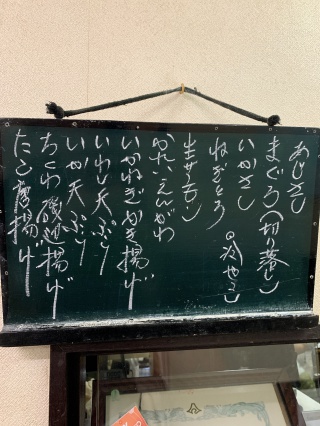 あじさし
まぐろ(切り落し)
いかさし
ねぎとろ
冷やっこ
生サーモン
かれいえんがわ
いかねぎかき揚げ
いわし天ぷら
いか天ぷら
ちくわ磯辺揚げ
たこ唐揚げ